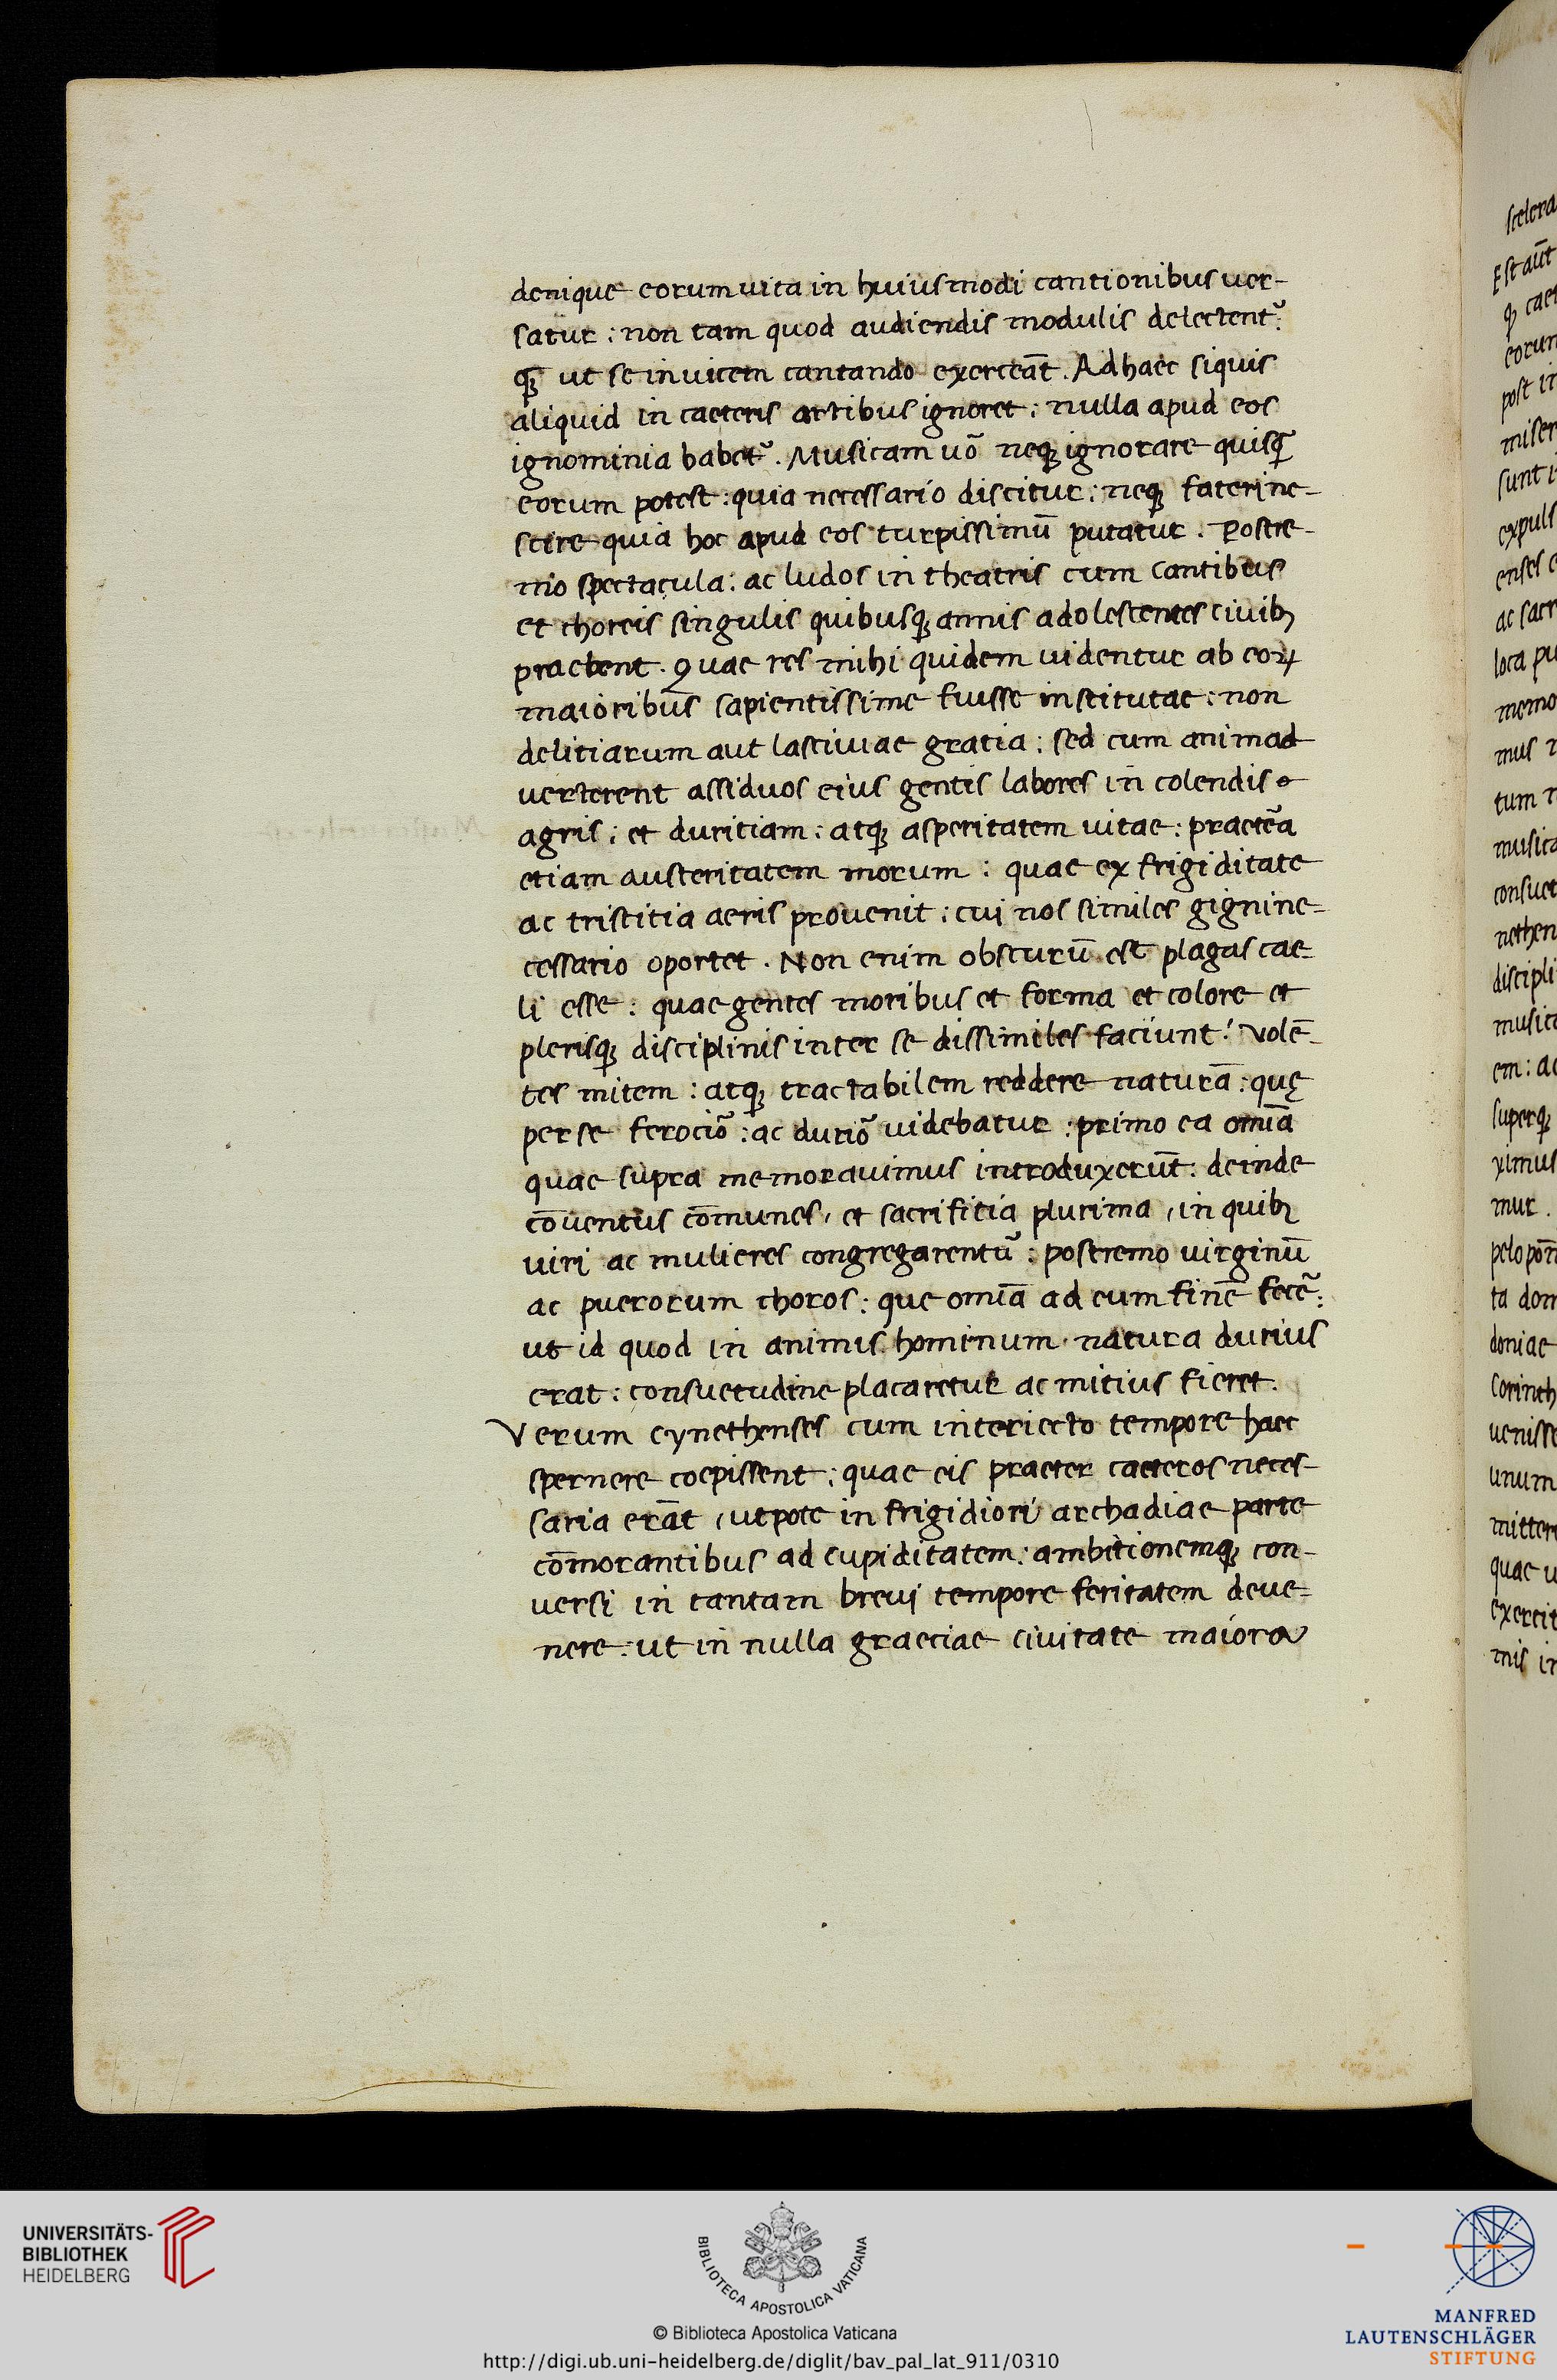 denique eorum uita in huiusmodi cantionibus uer-
satur: non tam quod audiendis modulis delectent᷑:
qȝ̄ ut se inuicem cantando exerceāt. Ad haec siquis
aliquid in caeteris artibus ignoret: nulla apud eos
ignominia habet᷑. Musicam uō neqȝ ignorare quisqȝ̄
eorum potest: quia necessario discitur: neqȝ faterine-
scire quia hoc apud eos turpissimū putatur. Postre-
mo spectacula: ac ludos in theatris cum cantibus
et choreis singulis quibusqȝ annis adolescentes ciuibȝ
praebent. Quae res mihi quidem uidentur ab eoꝝ
maioribus sapientissime fuisse institutae: non
delitiarum aut lasciuiae gratia: sed cum animad
uerterent assiduos eius gentis labores in colendis
agris: et duritiam: atqȝ asperitatem uitae: praetēa
etiam austeritatem morum: quae ex frigiditate
ac tristitia aeris prouenit: cui nos similes gignine-
cessario oportet. Non enim obscurū est plagas cae-
li esse: quae gentes moribus et forma et colore et
plerisqȝ disciplinis inter se dissimiles faciunt: Volē-
tes mitem: atqȝ tractabilem reddere naturā: quę
per se ferociō: ac duriō uidebatur: primo ea omīa
quae supra memorauimus introduxerūt: deinde
cōuentus cōmunes, et sacrifitia plurima, in quibȝ
uiri ac mulieres congregarentu᷑: postremo uirginū
ac puerorum choros: que omīa ad eum finē fecē:
ut id quod in animis hominum natura durius
erat: consuetudine placaretur ac mitius fieret.
Verum cynethenses cum interiecto tempore haec
spernere coepissent: quae eis praeter caeteros neces-
saria erāt, utpote in frigidiori archadiae parte
cōmorantibus ad cupiditatem: ambitionemqȝ con-
uersi in tantam breui tempore feritatem deue-
nere: ut in nulla graeciae ciuitate maiora
UNIVERSITÄTS-
BIBLIOTHEK
HEIDELBERG
BIBLIOTECA APOSTOLICA VATICANA
© Biblioteca Apostolica Vaticana
http://digi.ub.uni-heidelberg.de/diglit/bav_pal_lat_911/0310
MANFRED
LAUTENSCHLÄGER
STIFTUNG